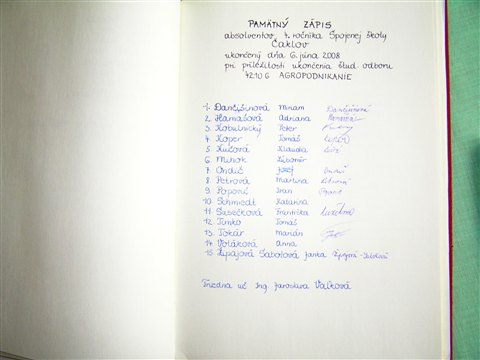 PAMÄTNÝ ZÁPIS
absolventov 4. ročníka Spojenej školy
Čaklov
ukončený dňa 6. júna 2008
pri príležitosti ukončenia štúd. odboru
4210 6 AGROPODNIKANIE
1. Dančišinová Miriam Dančišinová
2. Hamašová Adriana
3. Kobulnický Peter
4. Koper Tomáš Koper
5. Kučová Klaudia
6. Minok Ľubomír
7. Ondič Jozef Ondič
8. Petrová Martina
9. Popovič Ivan
10. Schmiedt Katarína
11. Susečková Františka
12. Timko Tomáš
13. Tokár Marián
14. Voláková Anna
15. Žipajová Sabolová Janka
Triedna uč. Ing. Jaroslava Vaľková